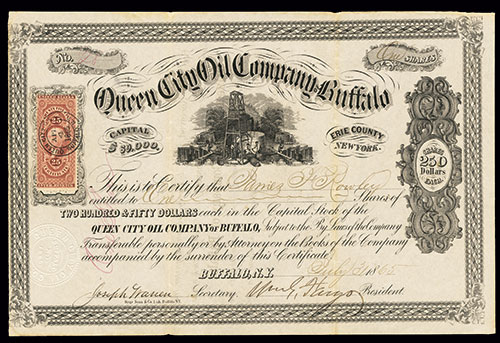 No. 
SHARES
Queen City Oil Company, Buffalo
CAPITAL
$ 30,000.
ERIE COUNTY,
NEW YORK.
25
25
25
SHARES
250
Dollars
EACH.
This is to Certify that James
entitled to One Shares of
TWO HUNDRED & FIFTY DOLLARS each in the Capital Stock of the
QUEEN CITY OIL COMPANY OF BUFFALO, Subject to the By Laws of the Company
Transferable personally or by Attorney on the Books of the Company
accompanied by the surrender of this Certificate.
BUFFALO, N.Y. July 1865
Joseph Warren Secretary. Wm G. Fargo President